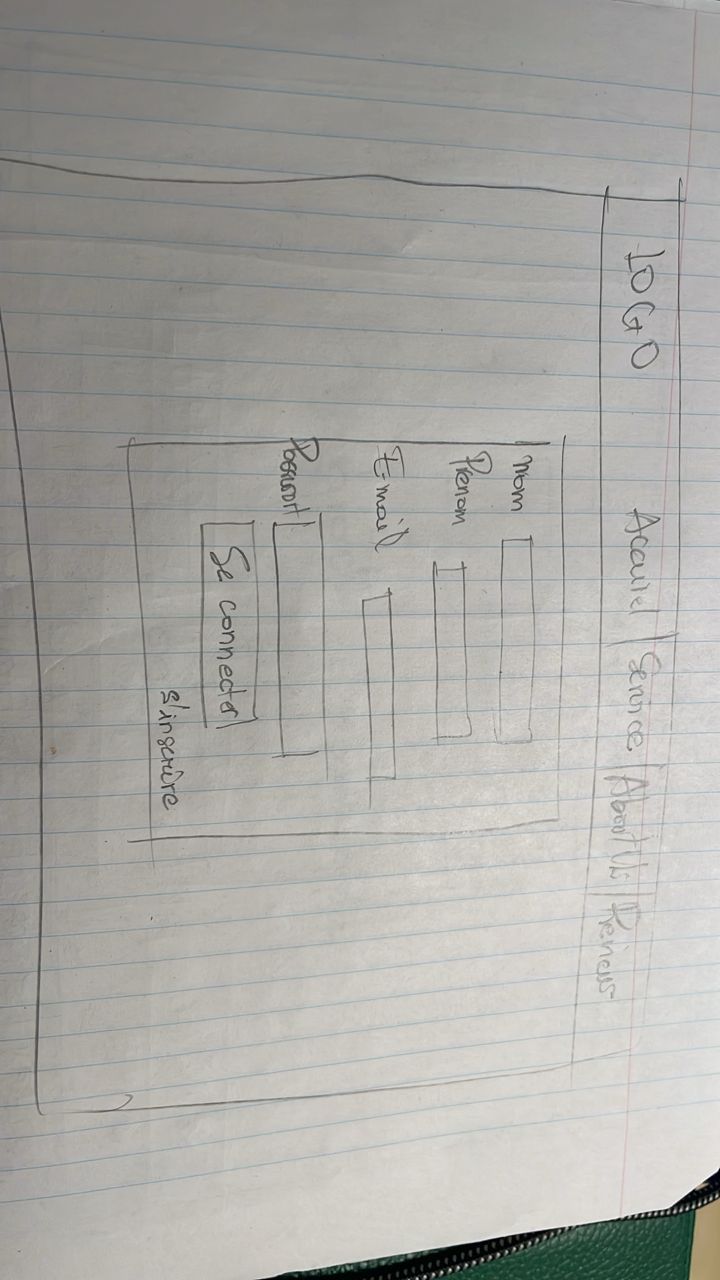 LOGO Accueil | Services | About Us | Reviews
Nom
Prenom
E-mail
Se connecter
s'inscrire